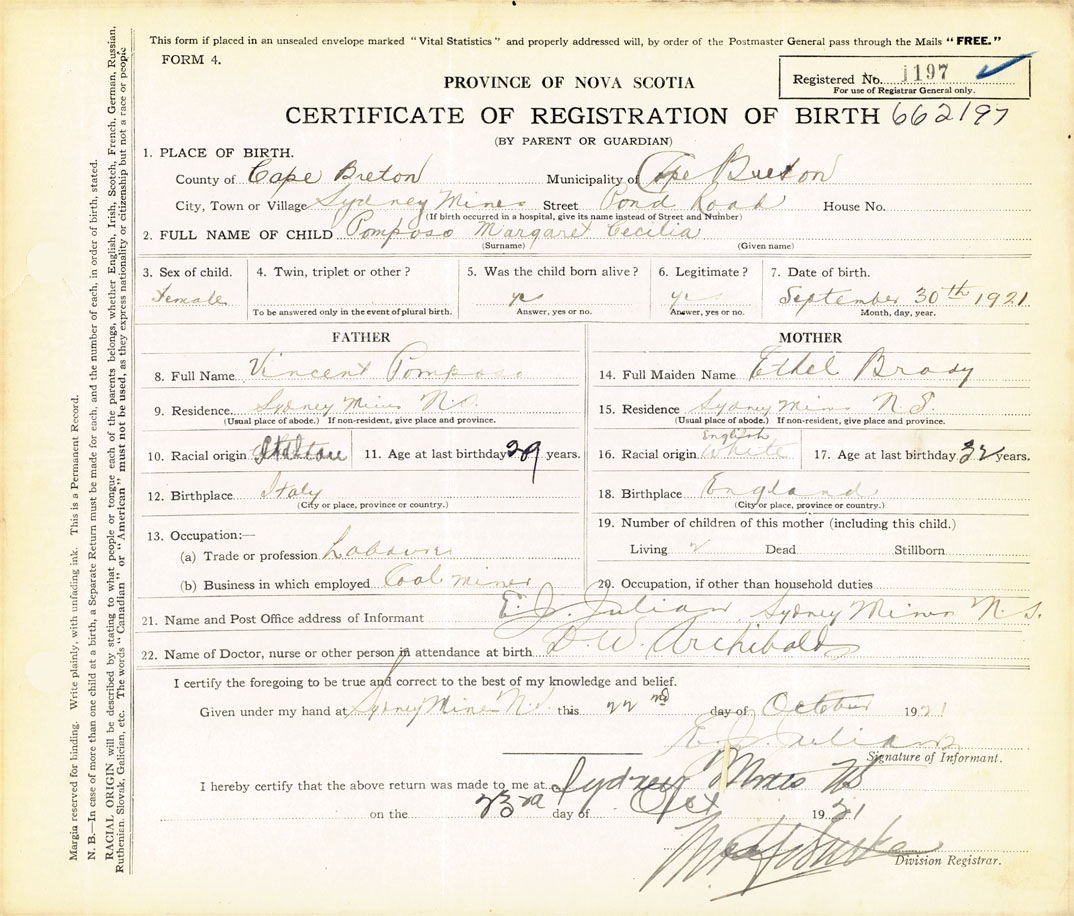 This form if placed in an unsealed envelope marked "Vital Statistics" and properly addressed will, by order of the Postmaster General pass through the Mails "FREE."
FORM 4.
Registered No. 1197
For use of Registrar General only.
PROVINCE OF NOVA SCOTIA
CERTIFICATE OF REGISTRATION OF BIRTH 662197
(BY PARENT OR GUARDIAN)
1. PLACE OF BIRTH.
County of Cape Breton Municipality of Cape Breton
City, Town or Village Sydney Mines Street Pond Road House No.
(If birth occurred in a hospital, give its name instead of Street and Number)
2. FULL NAME OF CHILD Pomposo Margaret Cecilia
(Surname) (Given name)
3. Sex of child. 4. Twin, triplet or other? 5. Was the child born alive? 6. Legitimate? 7. Date of birth.
Female yes yes September 30th 1921
To be answered only in the event of plural birth. Answer, yes or no. Answer, yes or no. Month, day, year.
FATHER MOTHER
8. Full Name Vincent Pomposo 14. Full Maiden Name Ethel Brady
9. Residence Sydney Mines N.S. 15. Residence Sydney Mines N.S.
(Usual place of abode.) If non-resident, give place and province. (Usual place of abode.) If non-resident, give place and province.
English
10. Racial origin 11. Age at last birthday 29 years. 16. Racial origin White 17. Age at last birthday 32 years.
12. Birthplace Italy 18. Birthplace England
(City or place, province or country.) (City or place, province or country.)
13. Occupation:— 19. Number of children of this mother (including this child.)
(a) Trade or profession Labourer Living 2 Dead Stillborn
(b) Business in which employed Coal mines 20. Occupation, if other than household duties
21. Name and Post Office address of Informant E. J. Julian Sydney Mines N.S.
22. Name of Doctor, nurse or other person in attendance at birth D. W. Archibald
I certify the foregoing to be true and correct to the best of my knowledge and belief.
Given under my hand at Sydney Mines N.S. this 22nd day of October 1921
E. J. Julian
Signature of Informant.
I hereby certify that the above return was made to me at Sydney Mines NS
on the 23rd day of Oct 1921
Division Registrar.
Margin reserved for binding. Write plainly, with unfading ink. This is a Permanent Record.
N. B.—In case of more than one child at a birth, a Separate Return must be made for each, and the number of each, in order of birth, stated.
RACIAL ORIGIN will be described by stating to what people or tongue each of the parents belongs, whether English, Irish, Scotch, French, German, Russian,
Ruthenian, Slovak, Galician, etc. The words "Canadian" or "American" must not be used, as they express nationality or citizenship but not a race or people